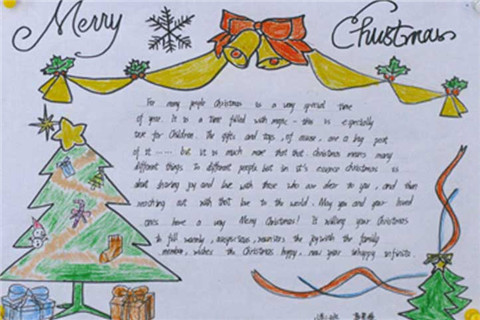 Merry Christmas
For many people Christmas is a very special time
of year. It is a time filled with magic - this is especially
true for Children. The gifts and toys, of course, are a big part
of it ...... but it is much more that that christmas means many
different things to different people but in it's essence christmas is
about sharing joy and love with those who are dear to you, and then
reaching out with that love to the world. May you and your loved
ones have a very Merry Christmas! It
your Christmas
to fill warmly,
the joy with the family
member, wishes the Christmas happy, new year